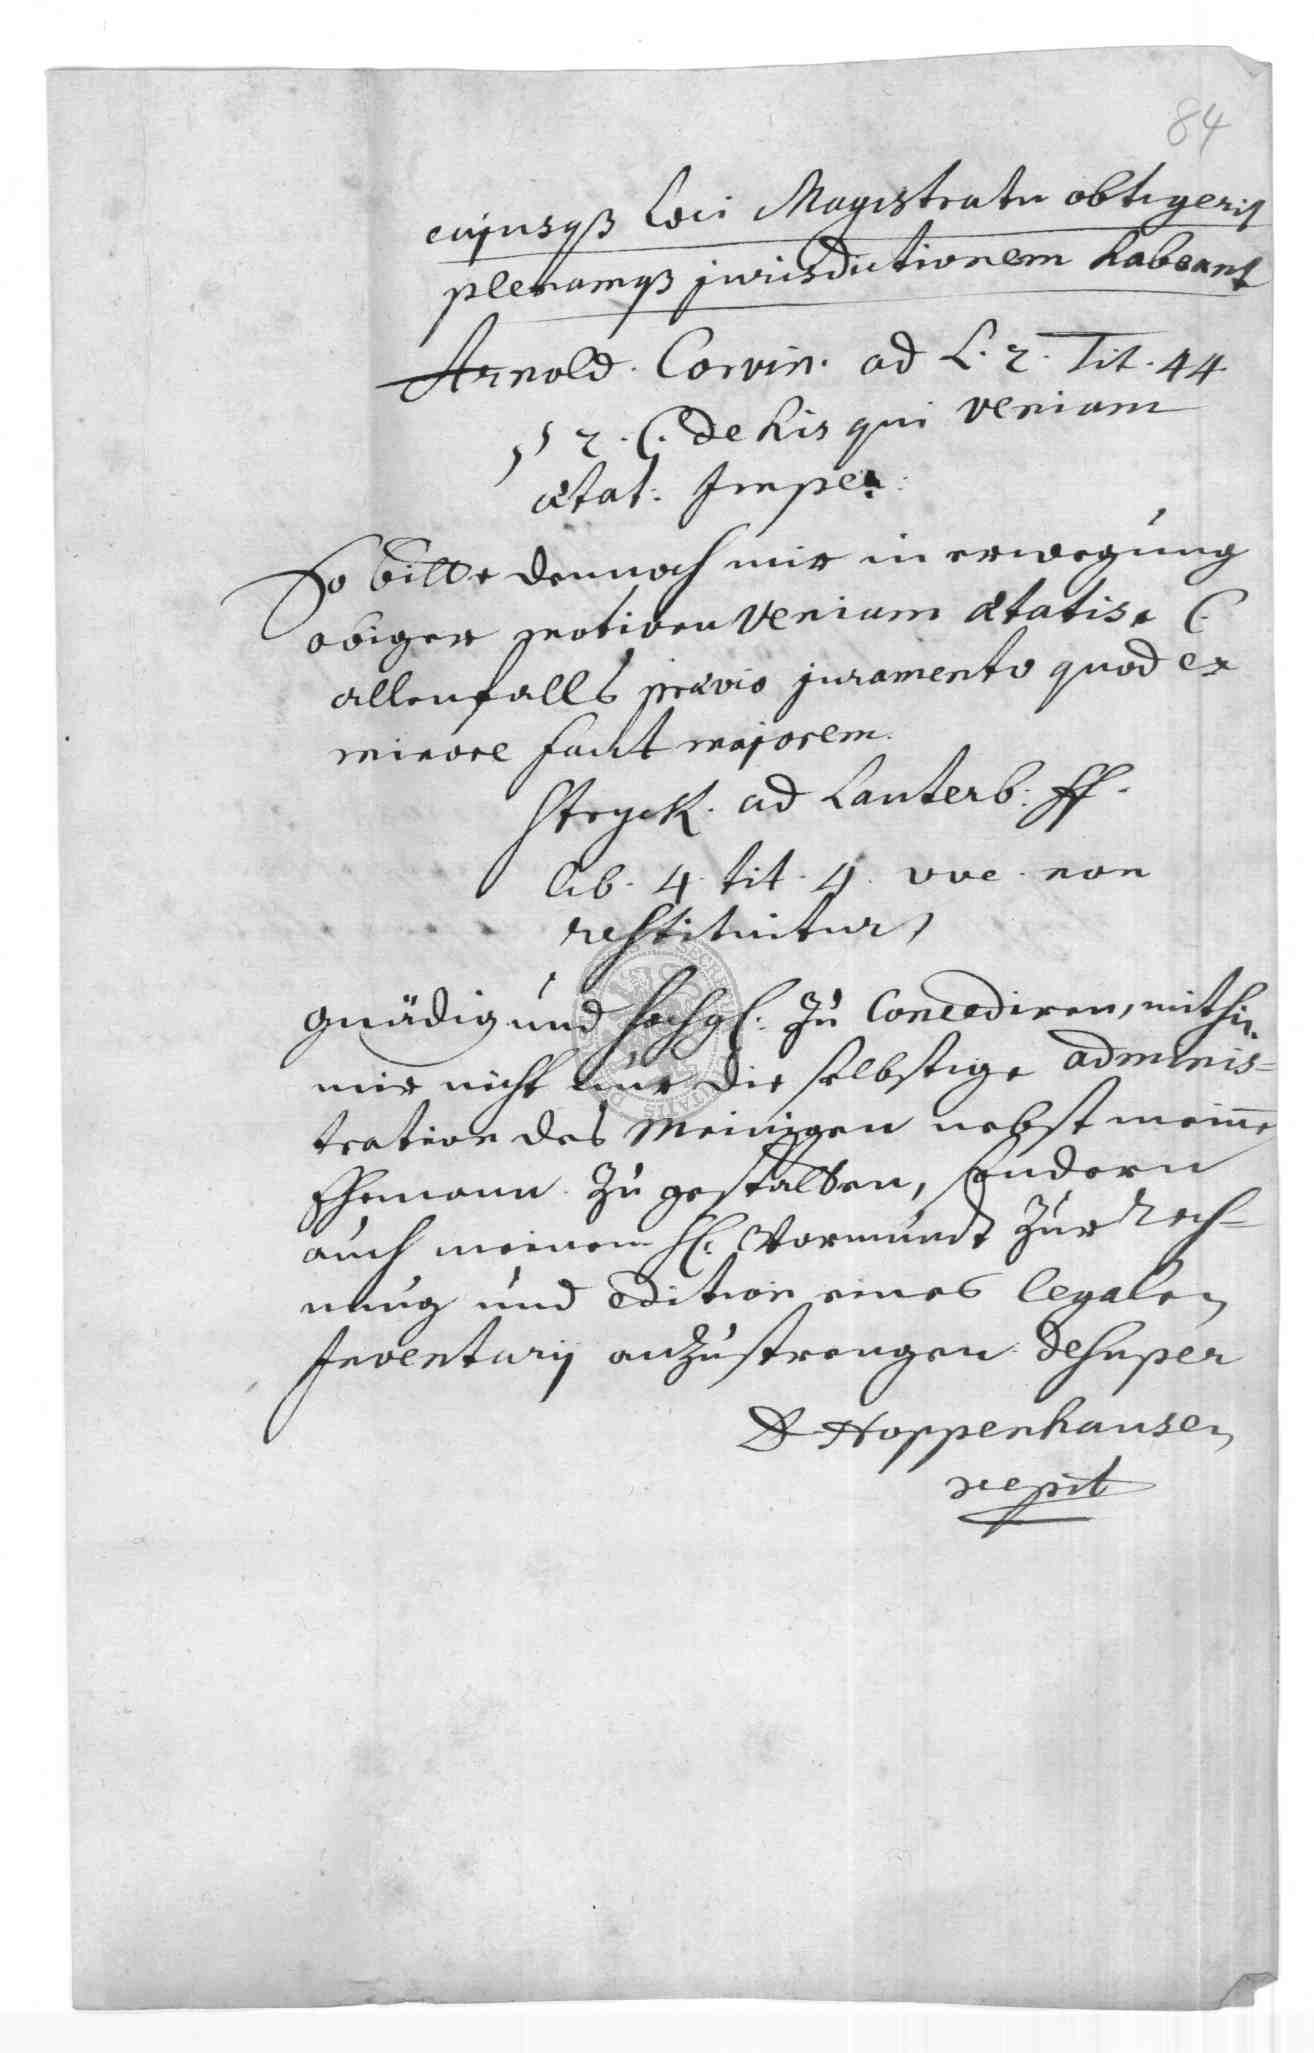 84
cujusqß loci Magistratu obtigerit
plenamqß jurisdictionem habeant
Arnold. Corvin. ad L. 2. Tit. 44
§ 2. C. de his qui veniam
ætat: Impe
So bitte demnach mir in erwegung
obiger motiven veniam ætatis, (
allenfalls prævio juramento quod ex
minore faut majorem.
Stryck. ad Lauterb: ff.
lib. 4. tit. 4. voc. non
restituitur)
gnädig und hochgl: zu concediren, mithin
mir nicht nur die selbstige adminis=
tration des Meinigen nebst meinē
Ehemann zu gestatten, sondern
auch meinem H. Vormundt zur Rech=
nung und edition eines legalen
Inventarij anzustrengen. Desuper
D Hoppenhausen